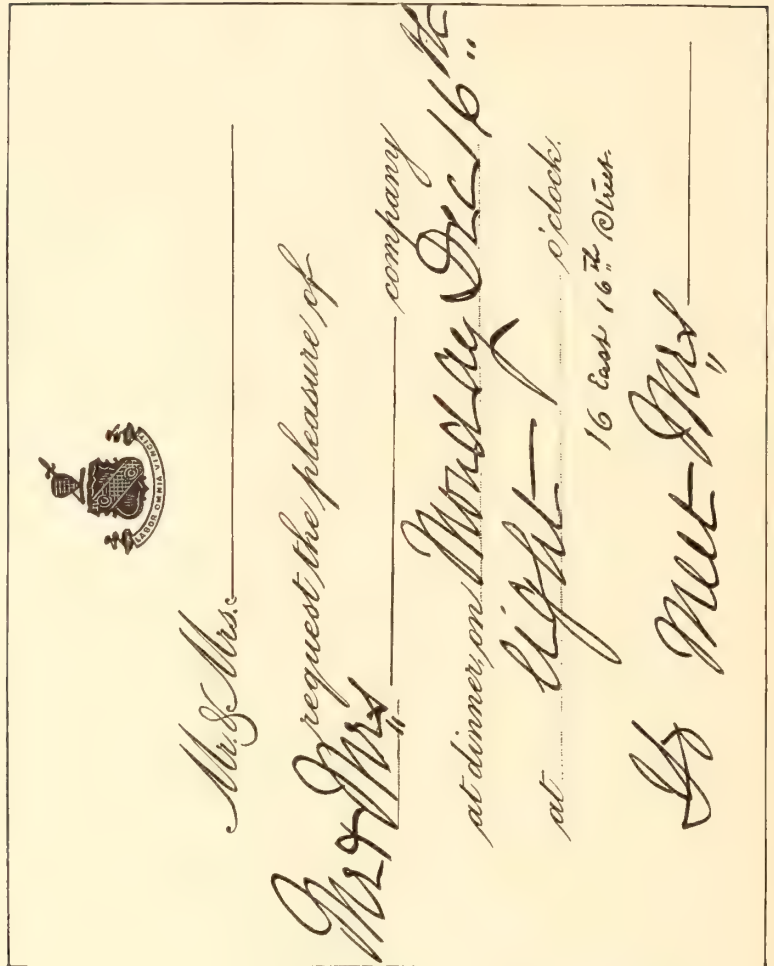 LABOR OMNIA VINCIT
Mr. & Mrs.
request the pleasure of
Mr & Mrs company
at dinner, on Monday Dec 16th
at eight o'clock.
16 East 16th Street.
To Meet Mrs